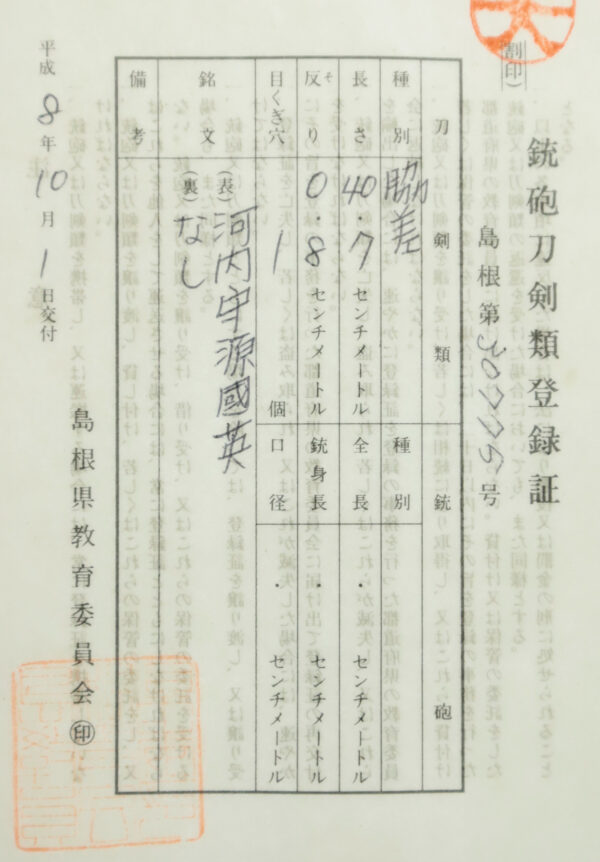 銃砲刀剣類登録証
(割印)
島根第 号
刀剣類
銃砲
種別
脇差
種別
長さ
40.7センチメートル
全長
・センチメートル
反り
そ
0.8センチメートル
銃身長
・センチメートル
目くぎ穴
1個
口径
・センチメートル
銘文
(表)河内守源國英
(裏)なし
備考
平成8年10月1日交付
島根県教育委員会㊞